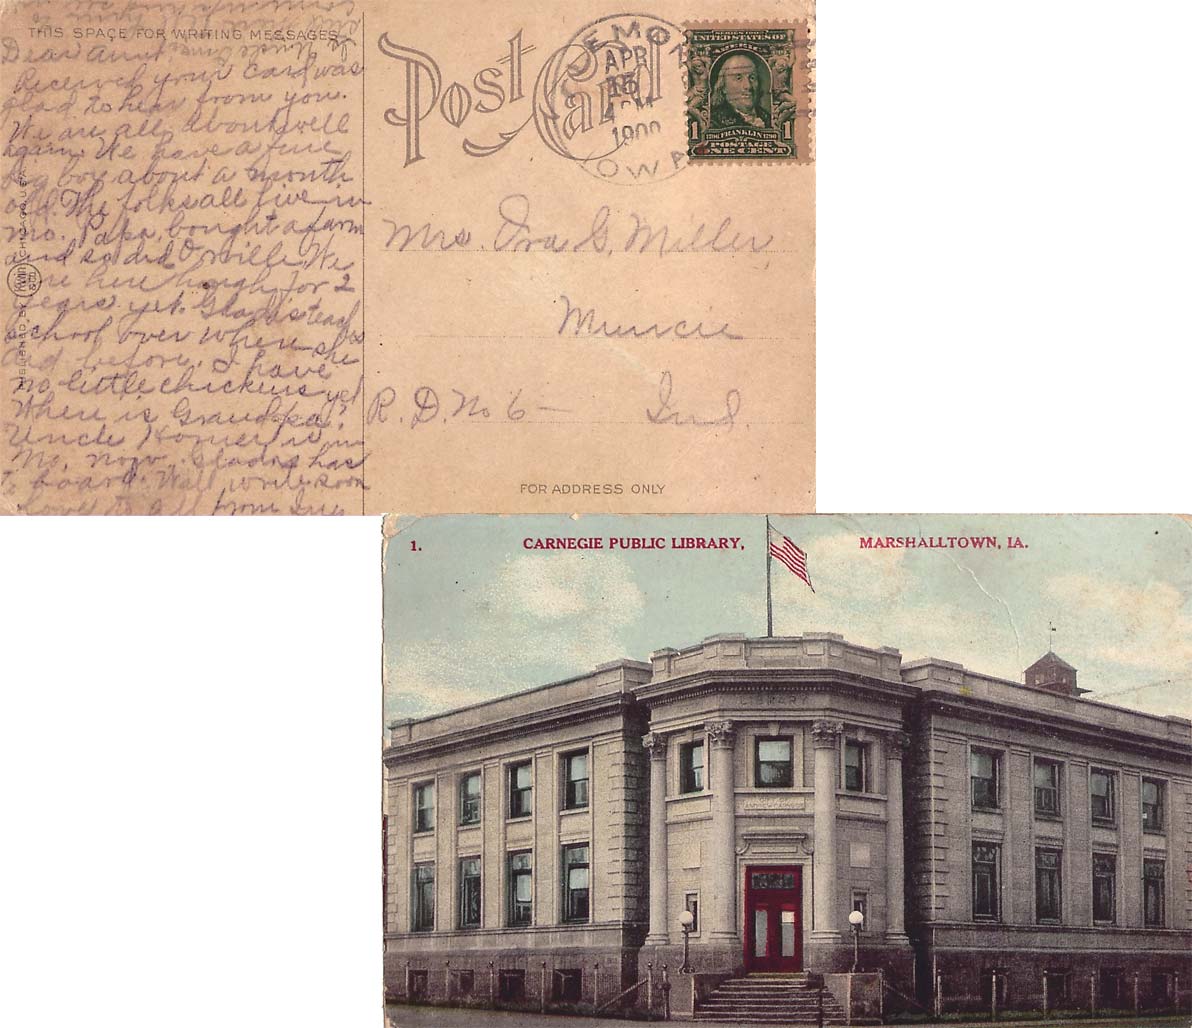 THIS SPACE FOR WRITING MESSAGES
Dear Aunt,
Received your card was
glad to hear from you.
We are all about well
again. We have a fine
big boy about a month
old. The folks all live in
Mo. Papa bought a farm
and so did Orville. We
are here though for 2
years yet. Gladis teaches
school over where she
did before. I have
no little chickens yet
Where is Grandpa?
Uncle Homer is in
Mo. now. Gladis has
to board. Well write soon
love to all from
PUBLISHED BY
CHICAGO, U.S.A.
Post Card
APR
4 PM
IOWA
SERIES 1902
UNITED STATES OF
AMERICA
1 FRANKLIN 1
POSTAGE
ONE CENT
Mrs. Ora G. Miller
Muncie
R. D. No 6 — Ind.
FOR ADDRESS ONLY
1. CARNEGIE PUBLIC LIBRARY, MARSHALLTOWN, IA.
LIBRARY